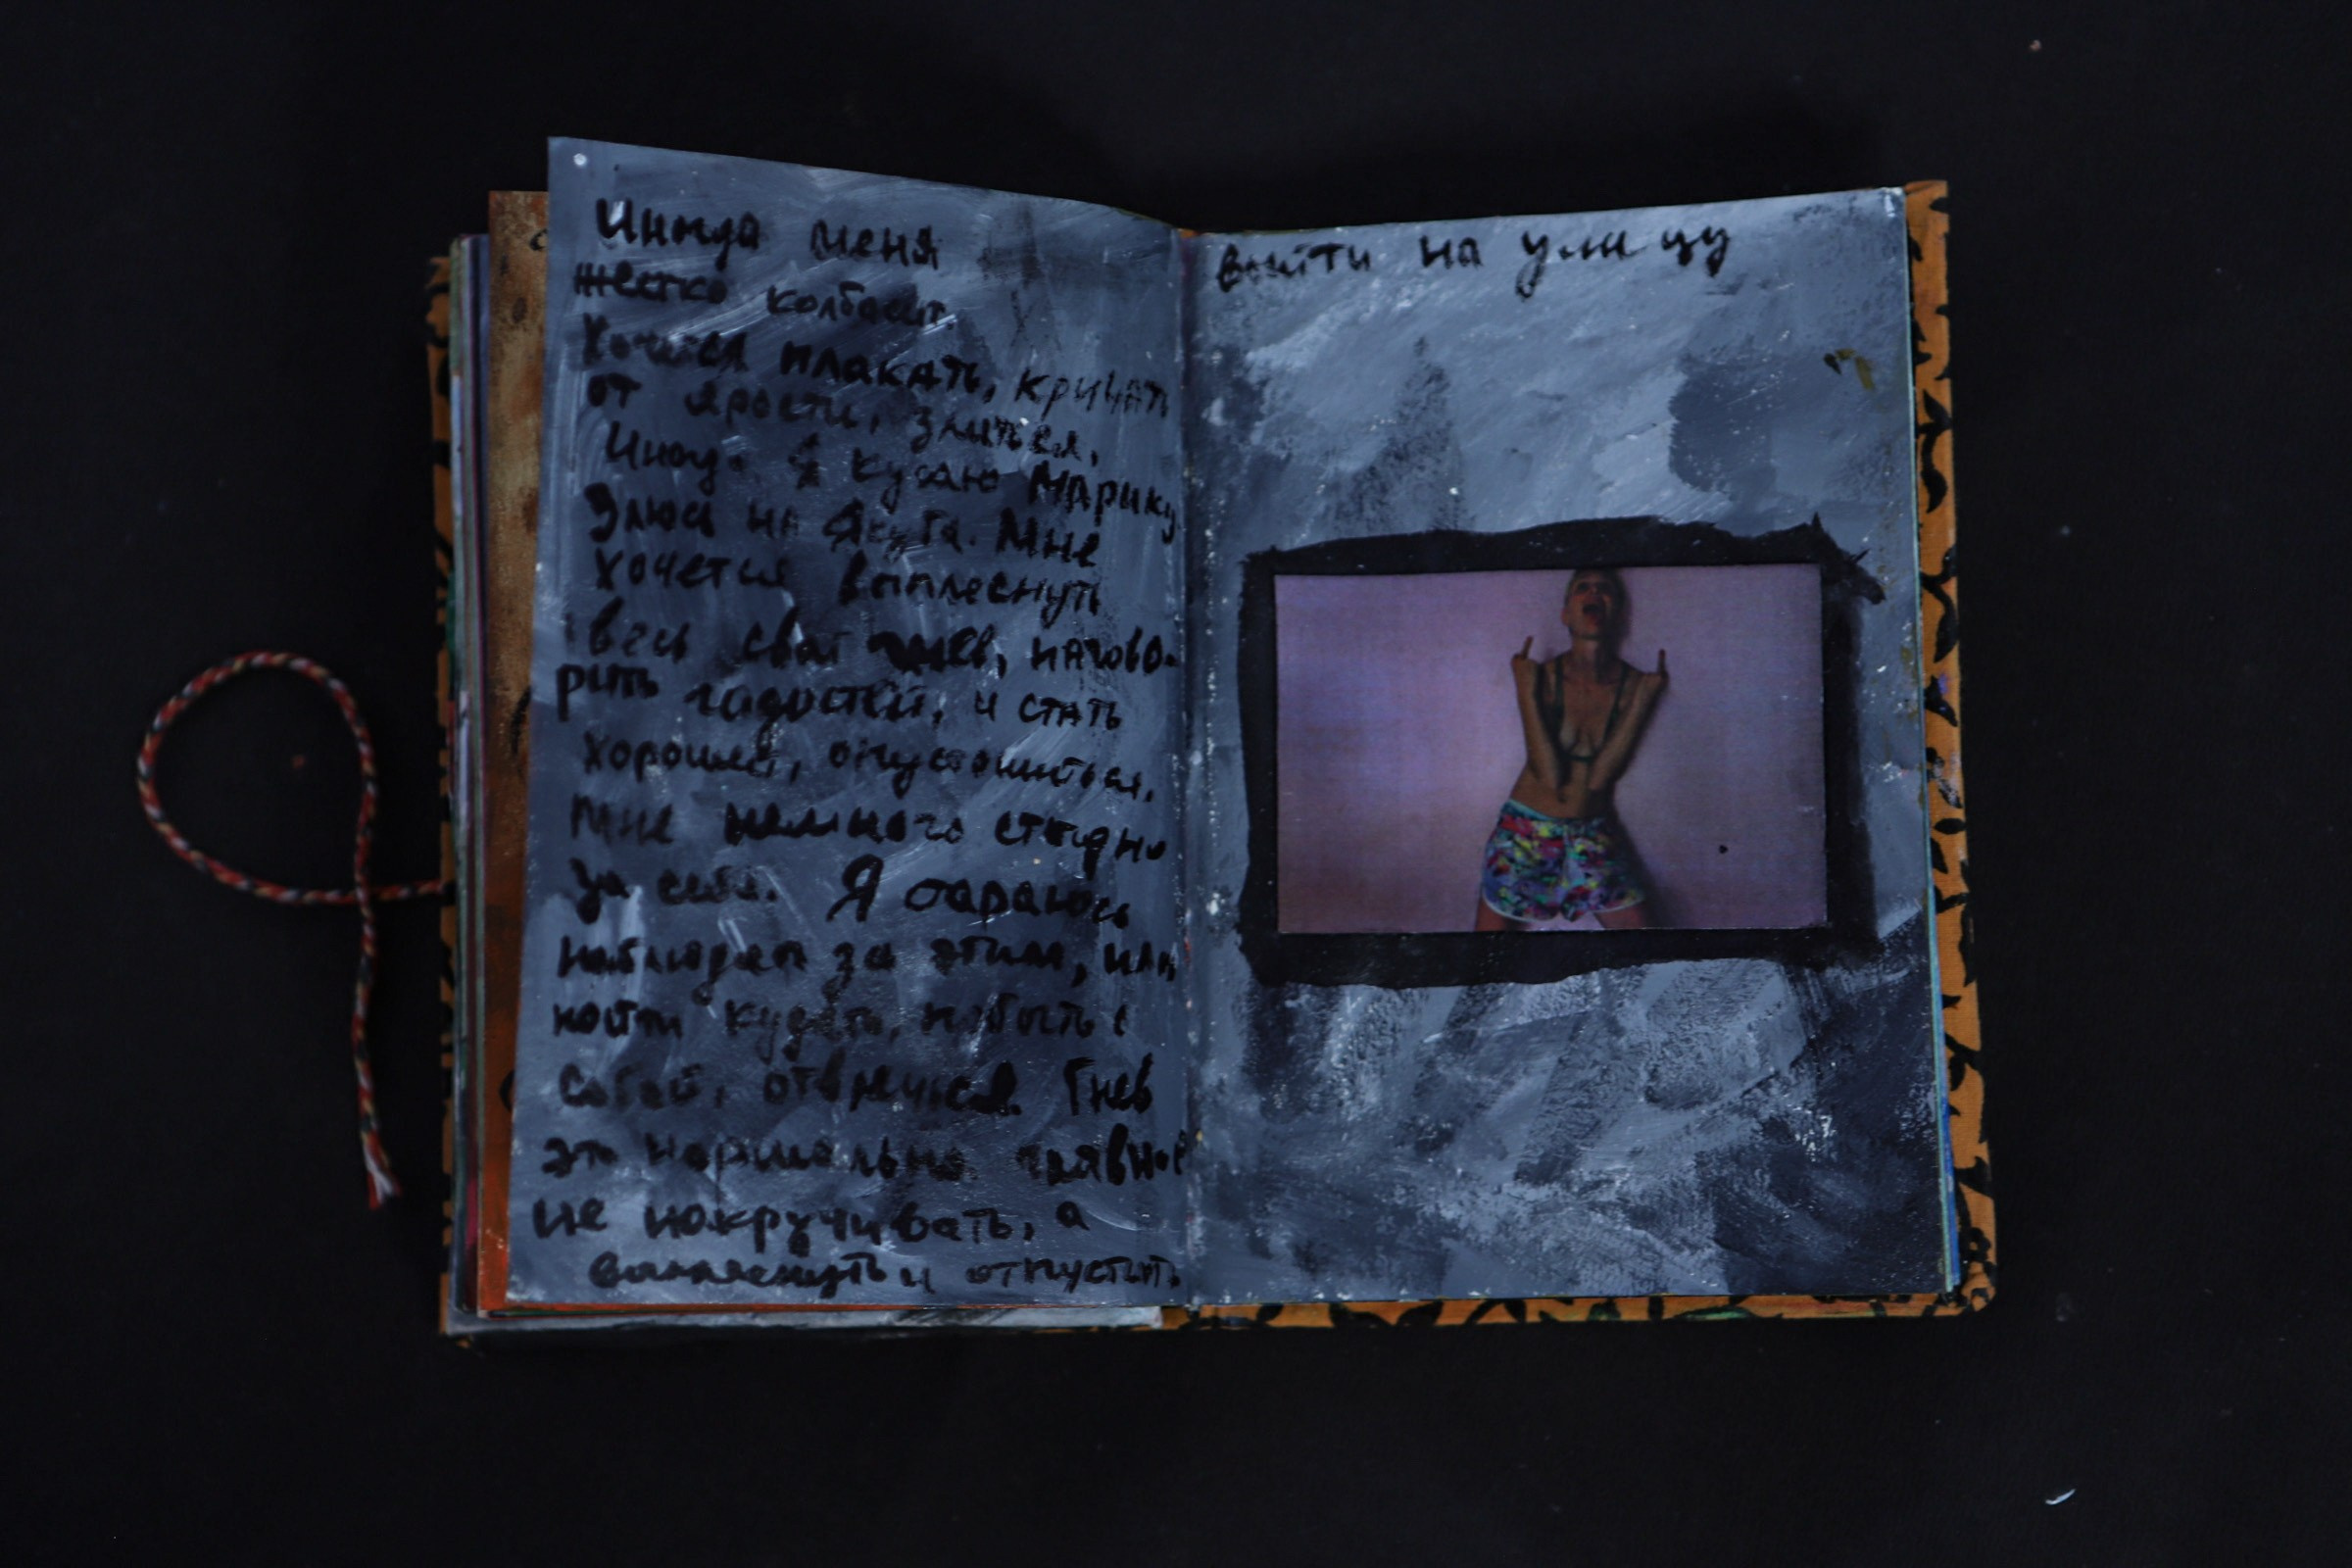 Иногда меня
жестко колбасит.
Хочется плакать, кричать
от ярости, злиться,
Иногда я кусаю Марику
Злюсь на Якуба. Мне
хочется выплеснуть
весь свой гнев, нагово-
рить гадостей, и стать
хорошей, опустошиться.
Мне немного стыдно
за себя. Я стараюсь
наблюдать за этим, или
пойти побыть с
собой, отвлечься. Гнев
это нормально. главное
не накручивать, а
выплеснуть и отпустить
выйти на улицу